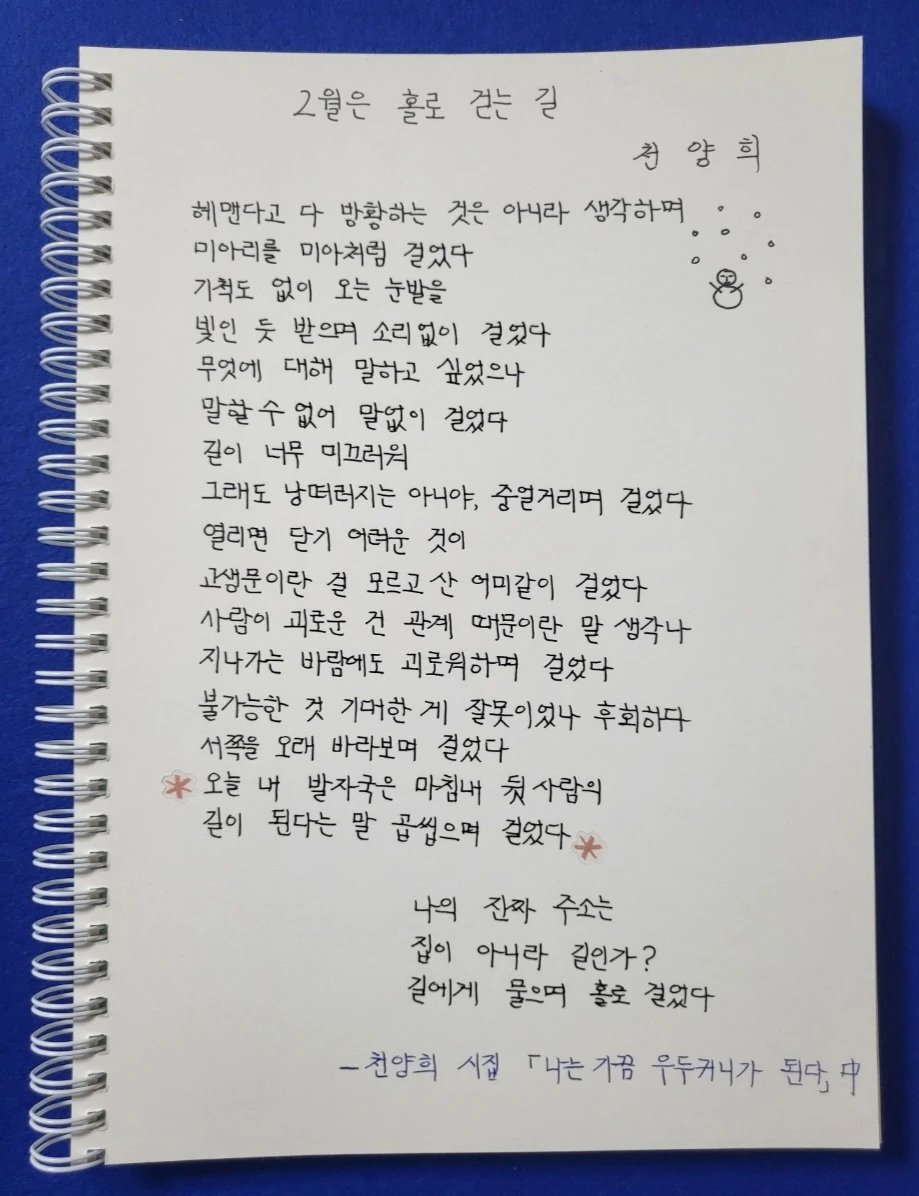 2월은 홀로 걷는 길
천양희
헤맨다고 다 방황하는 것은 아니라 생각하며
미아리를 미아처럼 걸었다
기척도 없이 오는 눈발을
빛인 듯 받으며 소리없이 걸었다
무엇에 대해 말하고 싶었으나
말할 수 없어 말없이 걸었다
길이 너무 미끄러워
그래도 낭떠러지는 아니야, 중얼거리며 걸었다
열리면 닫기 어려운 것이
고생문이란 걸 모르고 산 어미같이 걸었다
사람이 괴로운 건 관계 때문이란 말 생각나
지나가는 바람에도 괴로워하며 걸었다
불가능한 것 기대한 게 잘못이었나 후회하다
서쪽을 오래 바라보며 걸었다
* 오늘 내 발자국은 마침내 뒷 사람의
길이 된다는 말 곱씹으며 걸었다 *
나의 진짜 주소는
집이 아니라 길인가?
길에게 물으며 홀로 걸었다
- 천양희 시집 「나는 가끔 우두커니가 된다」 中